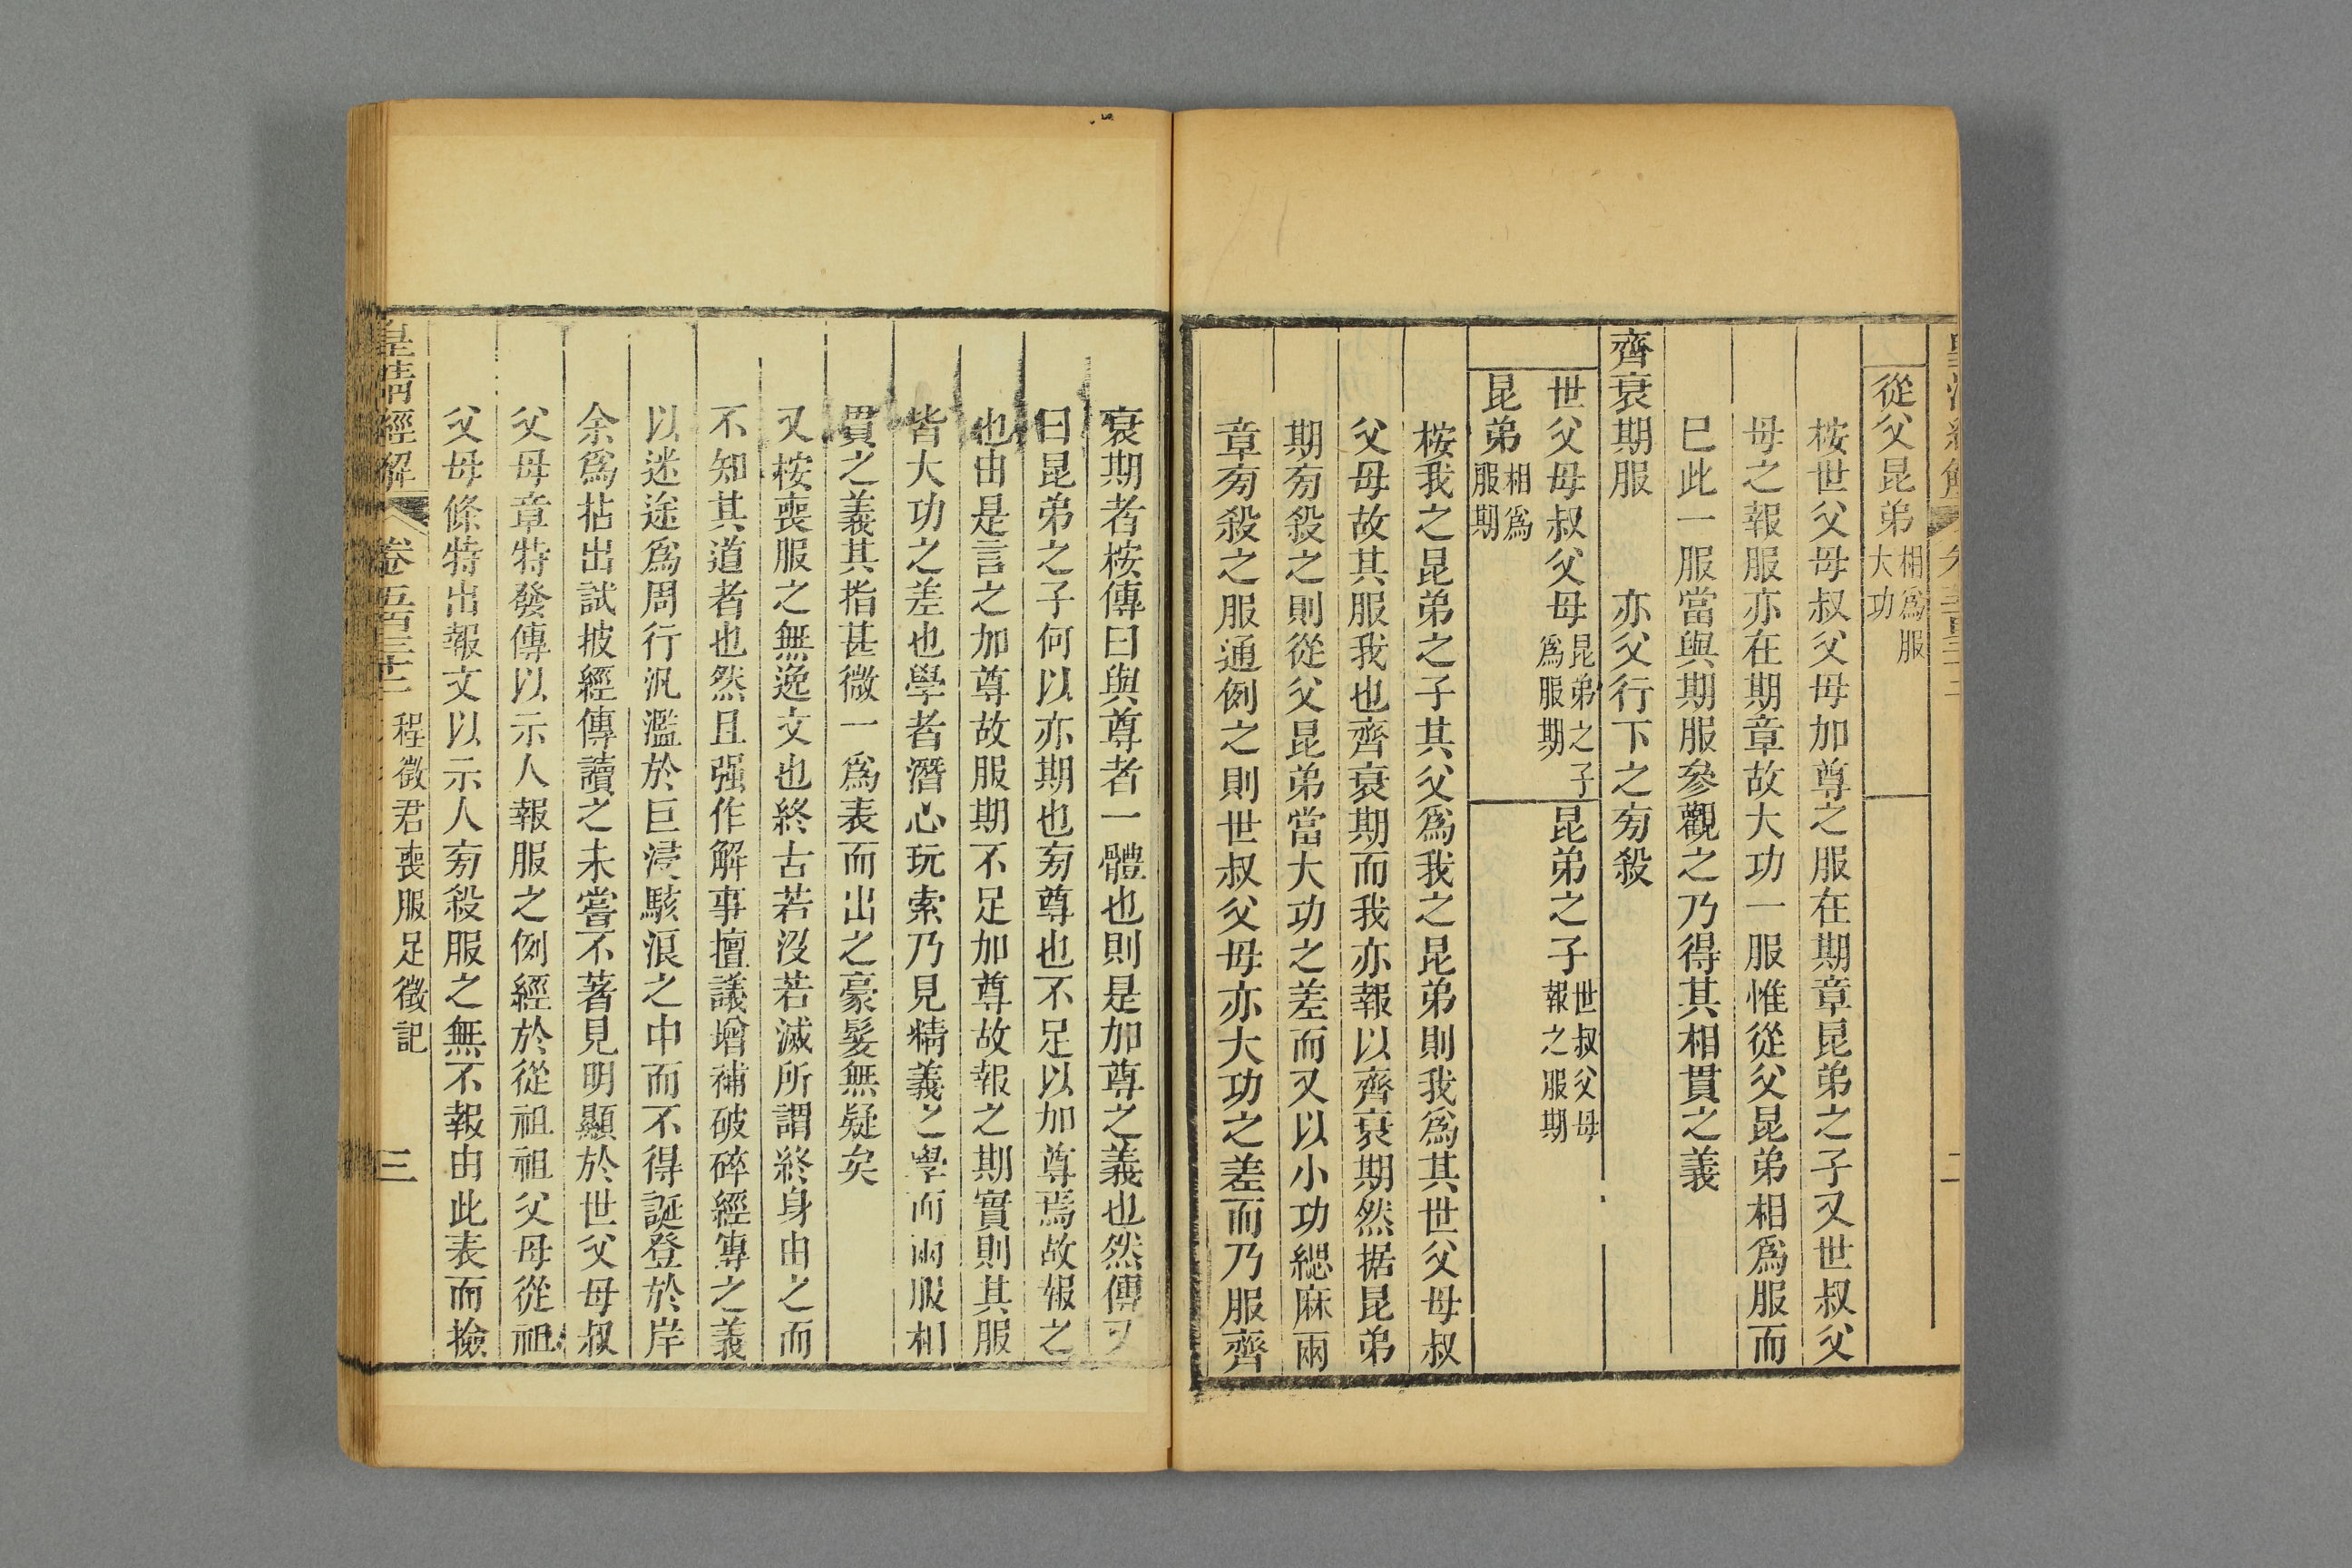 從父昆弟相爲服大功
桉世父母叔父母加尊之服在期章昆弟之子又世叔父
母之報服亦在期章故大功一服惟從父昆弟相爲服而
已此一服當與期服參觀之乃得其相貫之義
齊衰期服　亦父行下之㫄殺
世父母叔父母昆弟之子爲服期
昆弟之子世叔父母報之服期
昆弟相爲服期
桉我之昆弟之子其父爲我之昆弟則我爲其世父母叔
父母故其服我也齊衰期而我亦報以齊衰期然据昆弟
期㫄殺之則從父昆弟當大功之差而又以小功緦麻兩
章㫄殺之服通例之則世叔父母亦大功之差而乃服齊
衰期者桉傳曰與尊者一體也則是加尊之義也然傳又
曰昆弟之子何以亦期也㫄尊也不足以加尊焉故報之
也由是言之加尊故服期不足加尊故報之期實則其服
皆大功之差也學者潛心玩索乃見精義之學而兩服相
貫之義其指甚微一爲表而出之豪髮無疑矣
又桉喪服之無逸文也終古若沒若滅所謂終身由之而
不知其道者也然且强作解事擅議增補破碎經傳之義
以迷途爲周行汎濫於巨浸駭浪之中而不得誕登於岸
余爲拈出試披經傳讀之未嘗不著見明顯於世父母叔
父母章特發傳以示人報服之例經於從祖祖父母從祖
父母條特出報文以示人㫄殺服之無不報由此表而撿
皇清經解　卷五百三十二　程徵君喪服足徵記　三